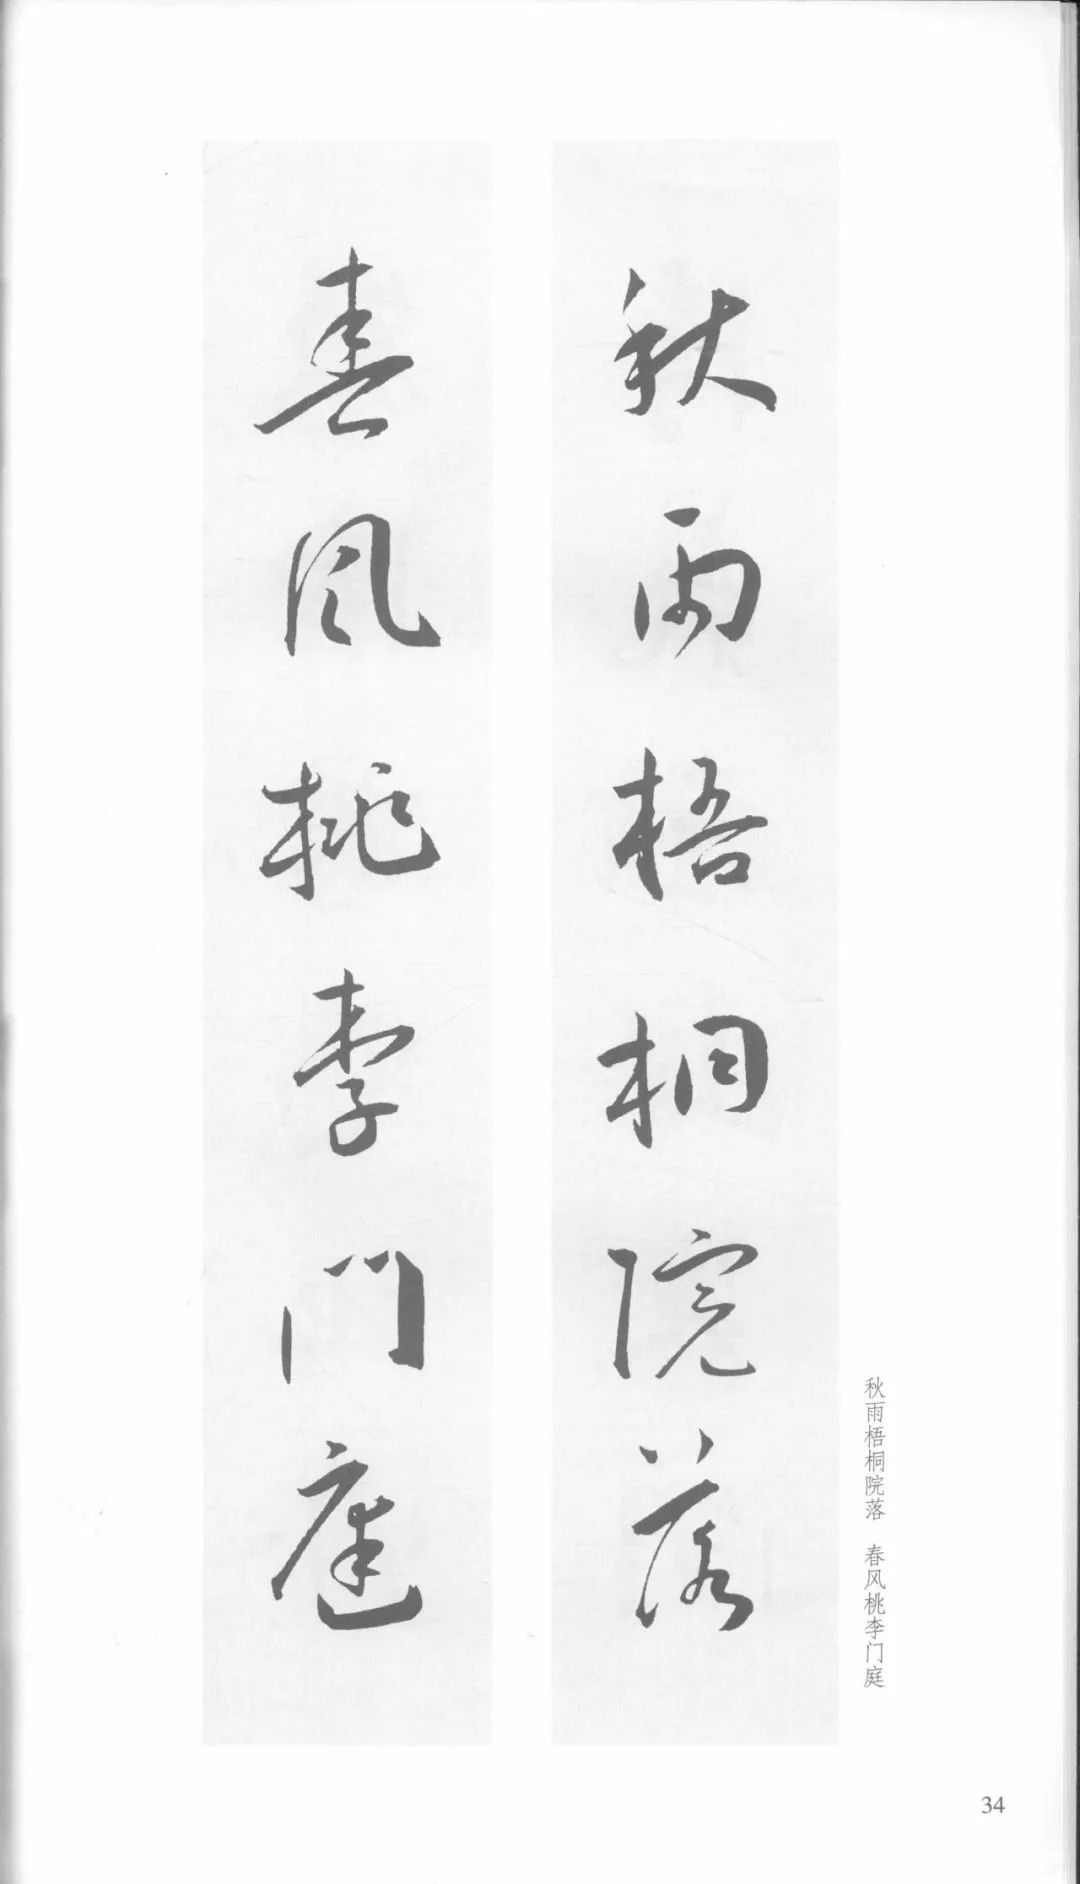 秋雨梧桐院落
春風桃李門庭
秋雨梧桐院落 春风桃李门庭
34